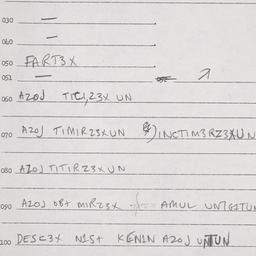 030 —
040 —
050 FART3X
051 —
060 AZOJ TICI,23X UN
070 AZOJ TIMIRZ3XUN INCTIM3RZ3XUN
080 AZOJ TITIRZ3XUN
090 AZOJ OBT MIRZ3X AMUL
100 DESC3X NIST KENIN AZOJ UNTUN